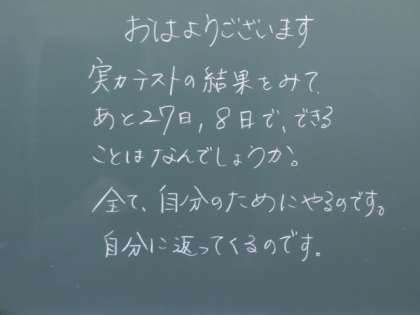 おはようございます
実力テストの結果をみて、
あと27日，8日で、できる
ことはなんでしょうか。
全て、自分のためにやるのです。
自分に返ってくるのです。